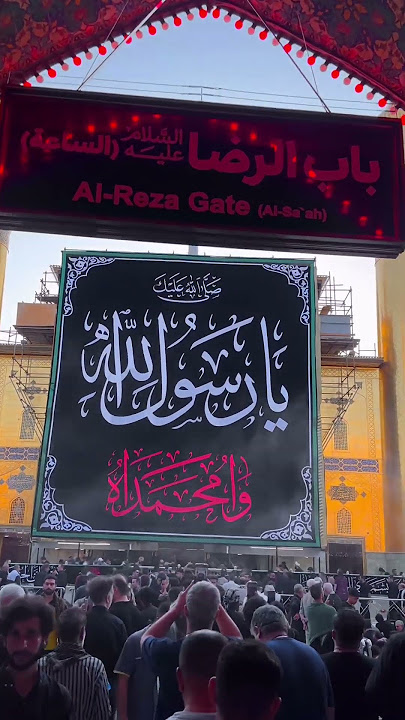 باب الرضا عليه السلام (الساعة)
Al-Reza Gate (Al-Sa`ah)
صَلَّى اللهُ عَلَيْكَ
يَا رَسُولَ اللهِ
وَا مُحَمَّدَاهُ